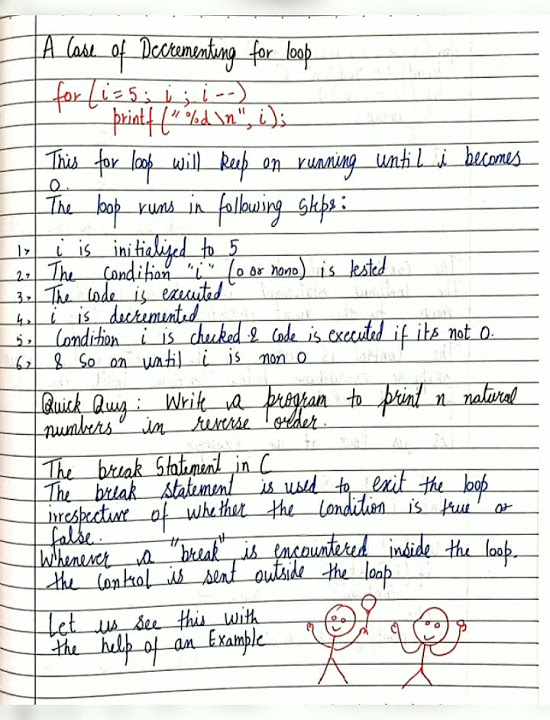 A Case of Decrementing for loop
for (i=5; i; i--)
printf ("%d \n", i);
This for loop will keep on running until i becomes
0.
The loop runs in following steps:
1> i is initialized to 5
2> The condition "i" (0 or nono) is tested
3> The code is executed
4> i is decremented
5> Condition i is checked & code is executed if its not 0.
6> & So on until i is non 0
Quick Quiz: Write a program to print n natural
numbers in reverse order.
The break Statement in C
The break statement is used to exit the loop
irrespective of whether the condition is true or
false.
Whenever a "break" is encountered inside the loop,
the control is sent outside the loop
Let us see this with
the help of an Example